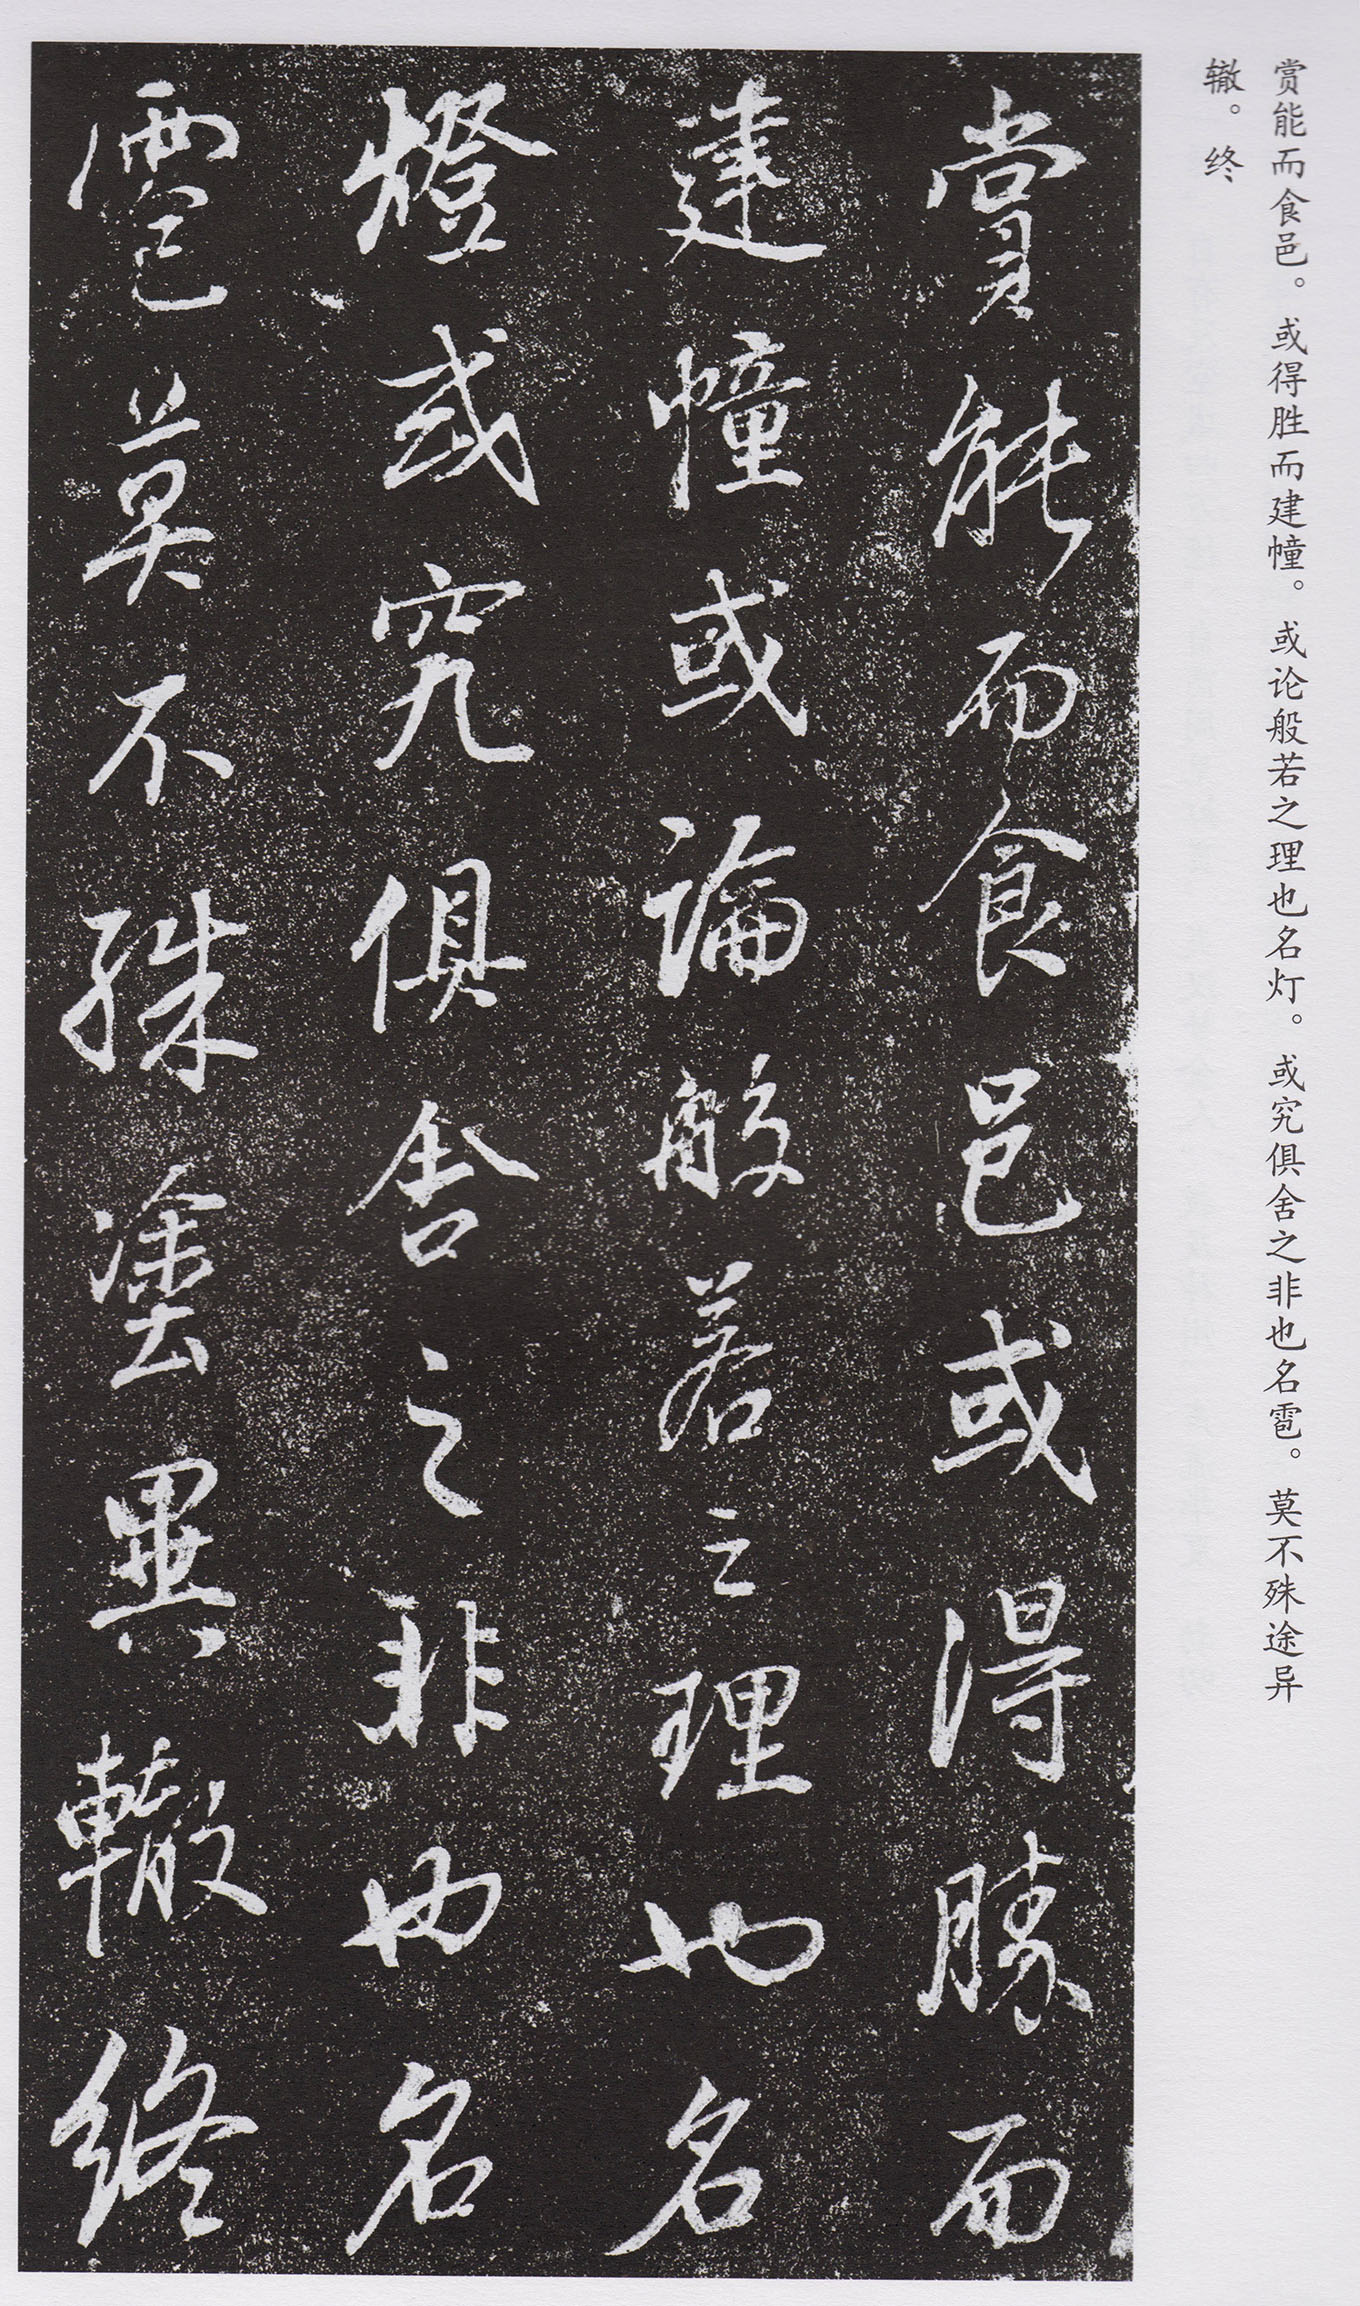 赏能而食邑。或得胜而建幢。或论般若之理也名灯。或究俱舍之非也名雹。莫不殊途异
辙。终
賞能而食邑或得勝而
建幢或論般若之理也名
燈或究俱舍之非也名
雹莫不殊塗異轍終